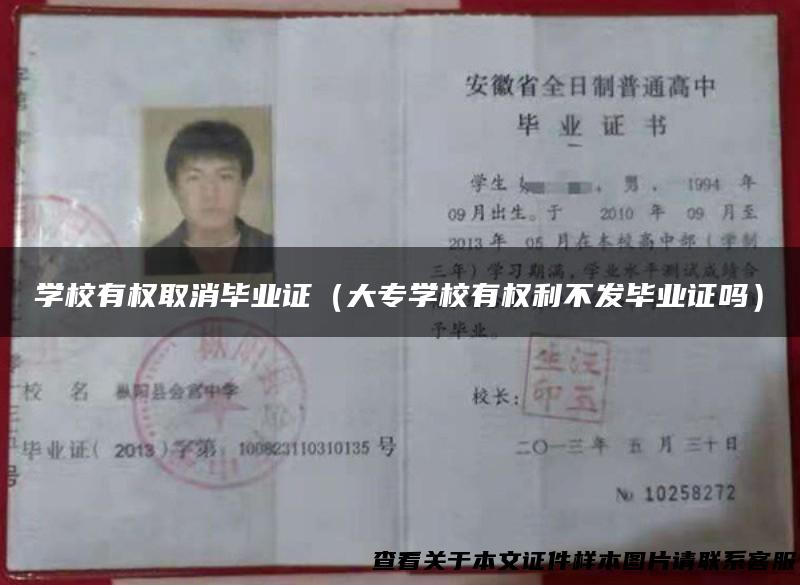 安徽省全日制普通高中
毕业证书
学生 ，男，1994 年
09月出生。于 2010 年 09 月至
2013年 05 月在本校高中部（学制
三年）学习期满，学业水平测试成绩合
学校有权取消毕业证（大专学校有权利不发毕业证吗）
予毕业。
校 名 枞阳县会宫中学
校长：
毕业证( 2013 )字第 100823110310135 号
二〇一三年 五 月 三十日
№ 10258272
查看关于本文证件样本图片请联系客服